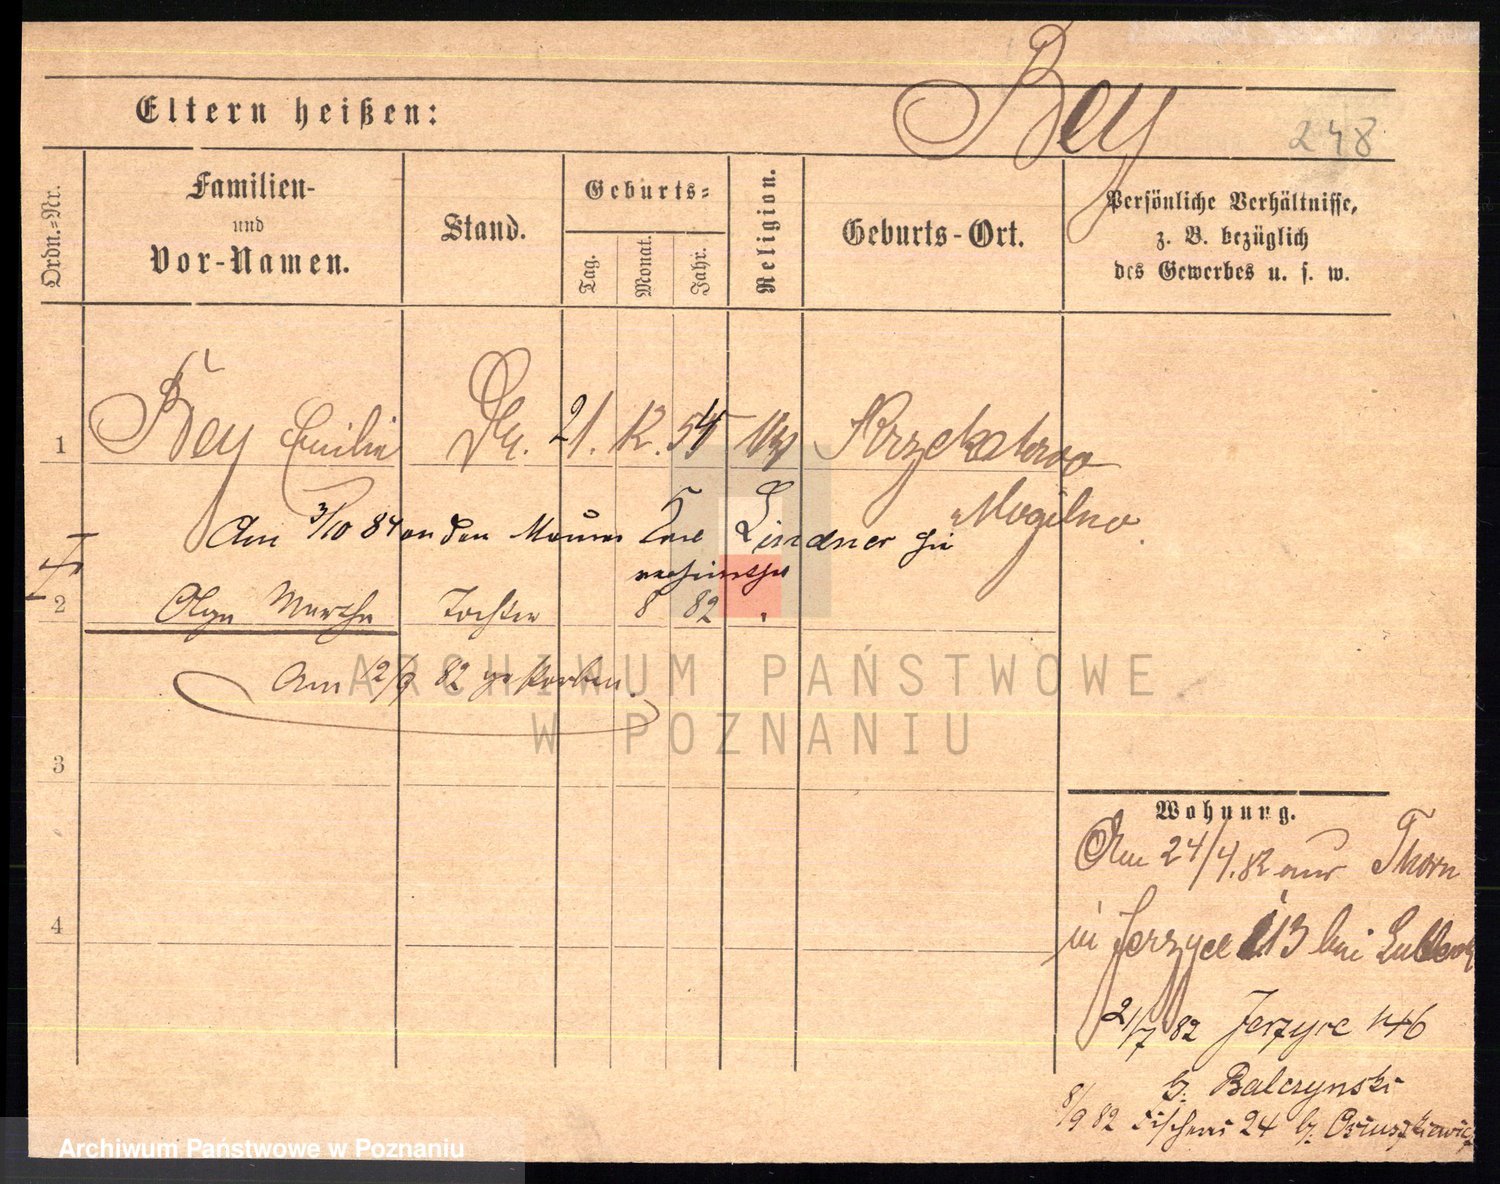 Bey
248
Eltern heißen:
Ordn.=Nr.
Familien-
und
Vor-Namen.
Stand.
Geburts=
Tag.
Monat.
Jahr.
Religion.
Geburts-Ort.
Persönliche Verhältnisse,
z. B. bezüglich
des Gewerbes u. s. w.
1 Bey Emilie 21. 12. 54
Mogilno
Am 3/10 84 an den Maurer Karl Lindner hie
verheirathet
2 Olga Martha Tochter 8 82
Am 12/9 82 gestorben.
ARCHIWUM PAŃSTWOWE
W POZNANIU
3
4
Wohnung.
Am 24/4. 82 aus Thorn
in Jerzyce 113 bei
21/7 82 Jerzyce 146
b. Balczynski
8/9 82 Fischerei 24 b.
Archiwum Państwowe w Poznaniu